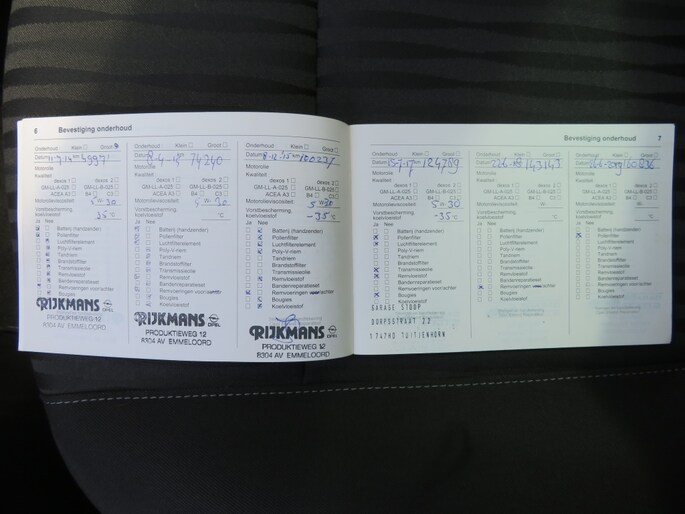 6 Bevestiging onderhoud
Onderhoud: Klein Groot
Datum
Motorolie
Kwaliteit:
dexos 1 dexos 2
GM-LL-A-025 GM-LL-B-025
ACEA A3 B4 C3
Motorolieviscositeit 5 W 30
Vorstbescherming
koelvloeistof: -35 °C
Ja Nee
Batterij (handzender)
Pollenfilter
Luchtfilterelement
Poly-V-riem
Tandriem
Brandstoffilter
Transmissieolie
Remvloeistof
Bandenreparatieset
Remvoeringen voor/achter
Bougies
Koelvloeistof
RIJKMANS OPEL
PRODUKTIEWEG 12
8304 AV EMMELOORD
Onderhoud: Klein Groot
Datum 74240
Motorolie
Kwaliteit:
dexos 1 dexos 2
GM-LL-A-025 GM-LL-B-025
ACEA A3 B4 C3
Motorolieviscositeit W 30
Vorstbescherming
koelvloeistof: °C
Ja Nee
Batterij (handzender)
Pollenfilter
Luchtfilterelement
Poly-V-riem
Tandriem
Brandstoffilter
Transmissieolie
Remvloeistof
Bandenreparatieset
Remvoeringen voor/achter
Bougies
Koelvloeistof
RIJKMANS OPEL
PRODUKTIEWEG 12
8304 AV EMMELOORD
Onderhoud: Klein Groot
Datum 8-12-15 km
Motorolie
Kwaliteit:
dexos 1 dexos 2
GM-LL-A-025 GM-LL-B-025
ACEA A3 B4 C3
Motorolieviscositeit 5 W 30
Vorstbescherming
koelvloeistof: -35 °C
Ja Nee
Batterij (handzender)
Pollenfilter
Luchtfilterelement
Poly-V-riem
Tandriem
Brandstoffilter
Transmissieolie
Remvloeistof
Bandenreparatieset
Remvoeringen voor/achter
Bougies
Koelvloeistof
RIJKMANS OPEL
PRODUKTIEWEG 12
8304 AV EMMELOORD
Bevestiging onderhoud 7
Onderhoud: Klein Groot
Datum 124789
Motorolie
Kwaliteit:
dexos 1 dexos 2
GM-LL-A-025 GM-LL-B-025
ACEA A3 B4 C3
Motorolieviscositeit 5 W 30
Vorstbescherming
koelvloeistof: -35 °C
Ja Nee
Batterij (handzender)
Pollenfilter
Luchtfilterelement
Poly-V-riem
Tandriem
Brandstoffilter
Transmissieolie
Remvloeistof
Bandenreparatieset
Remvoeringen voor/achter
Bougies
Koelvloeistof
GARAGE STOOP
DORPSTRAAT 23
1747HD TUITJENHORN
Onderhoud: Klein Groot
Datum 143143
Motorolie
Kwaliteit:
dexos 1 dexos 2
GM-LL-A-025 GM-LL-B-025
ACEA A3 B4 C3
Motorolieviscositeit W
Vorstbescherming
koelvloeistof: °C
Ja Nee
Batterij (handzender)
Pollenfilter
Luchtfilterelement
Poly-V-riem
Tandriem
Brandstoffilter
Transmissieolie
Remvloeistof
Bandenreparatieset
Remvoeringen voor/achter
Bougies
Koelvloeistof
Onderhoud: Klein Groot
Datum
Motorolie
Kwaliteit:
dexos 1 dexos 2
GM-LL-A-025 GM-LL-B-025
ACEA A3 B4 C3
Motorolieviscositeit W
Vorstbescherming
koelvloeistof: °C
Ja Nee
Batterij (handzender)
Pollenfilter
Luchtfilterelement
Poly-V-riem
Tandriem
Brandstoffilter
Transmissieolie
Remvloeistof
Bandenreparatieset
Remvoeringen voor/achter
Bougies
Koelvloeistof